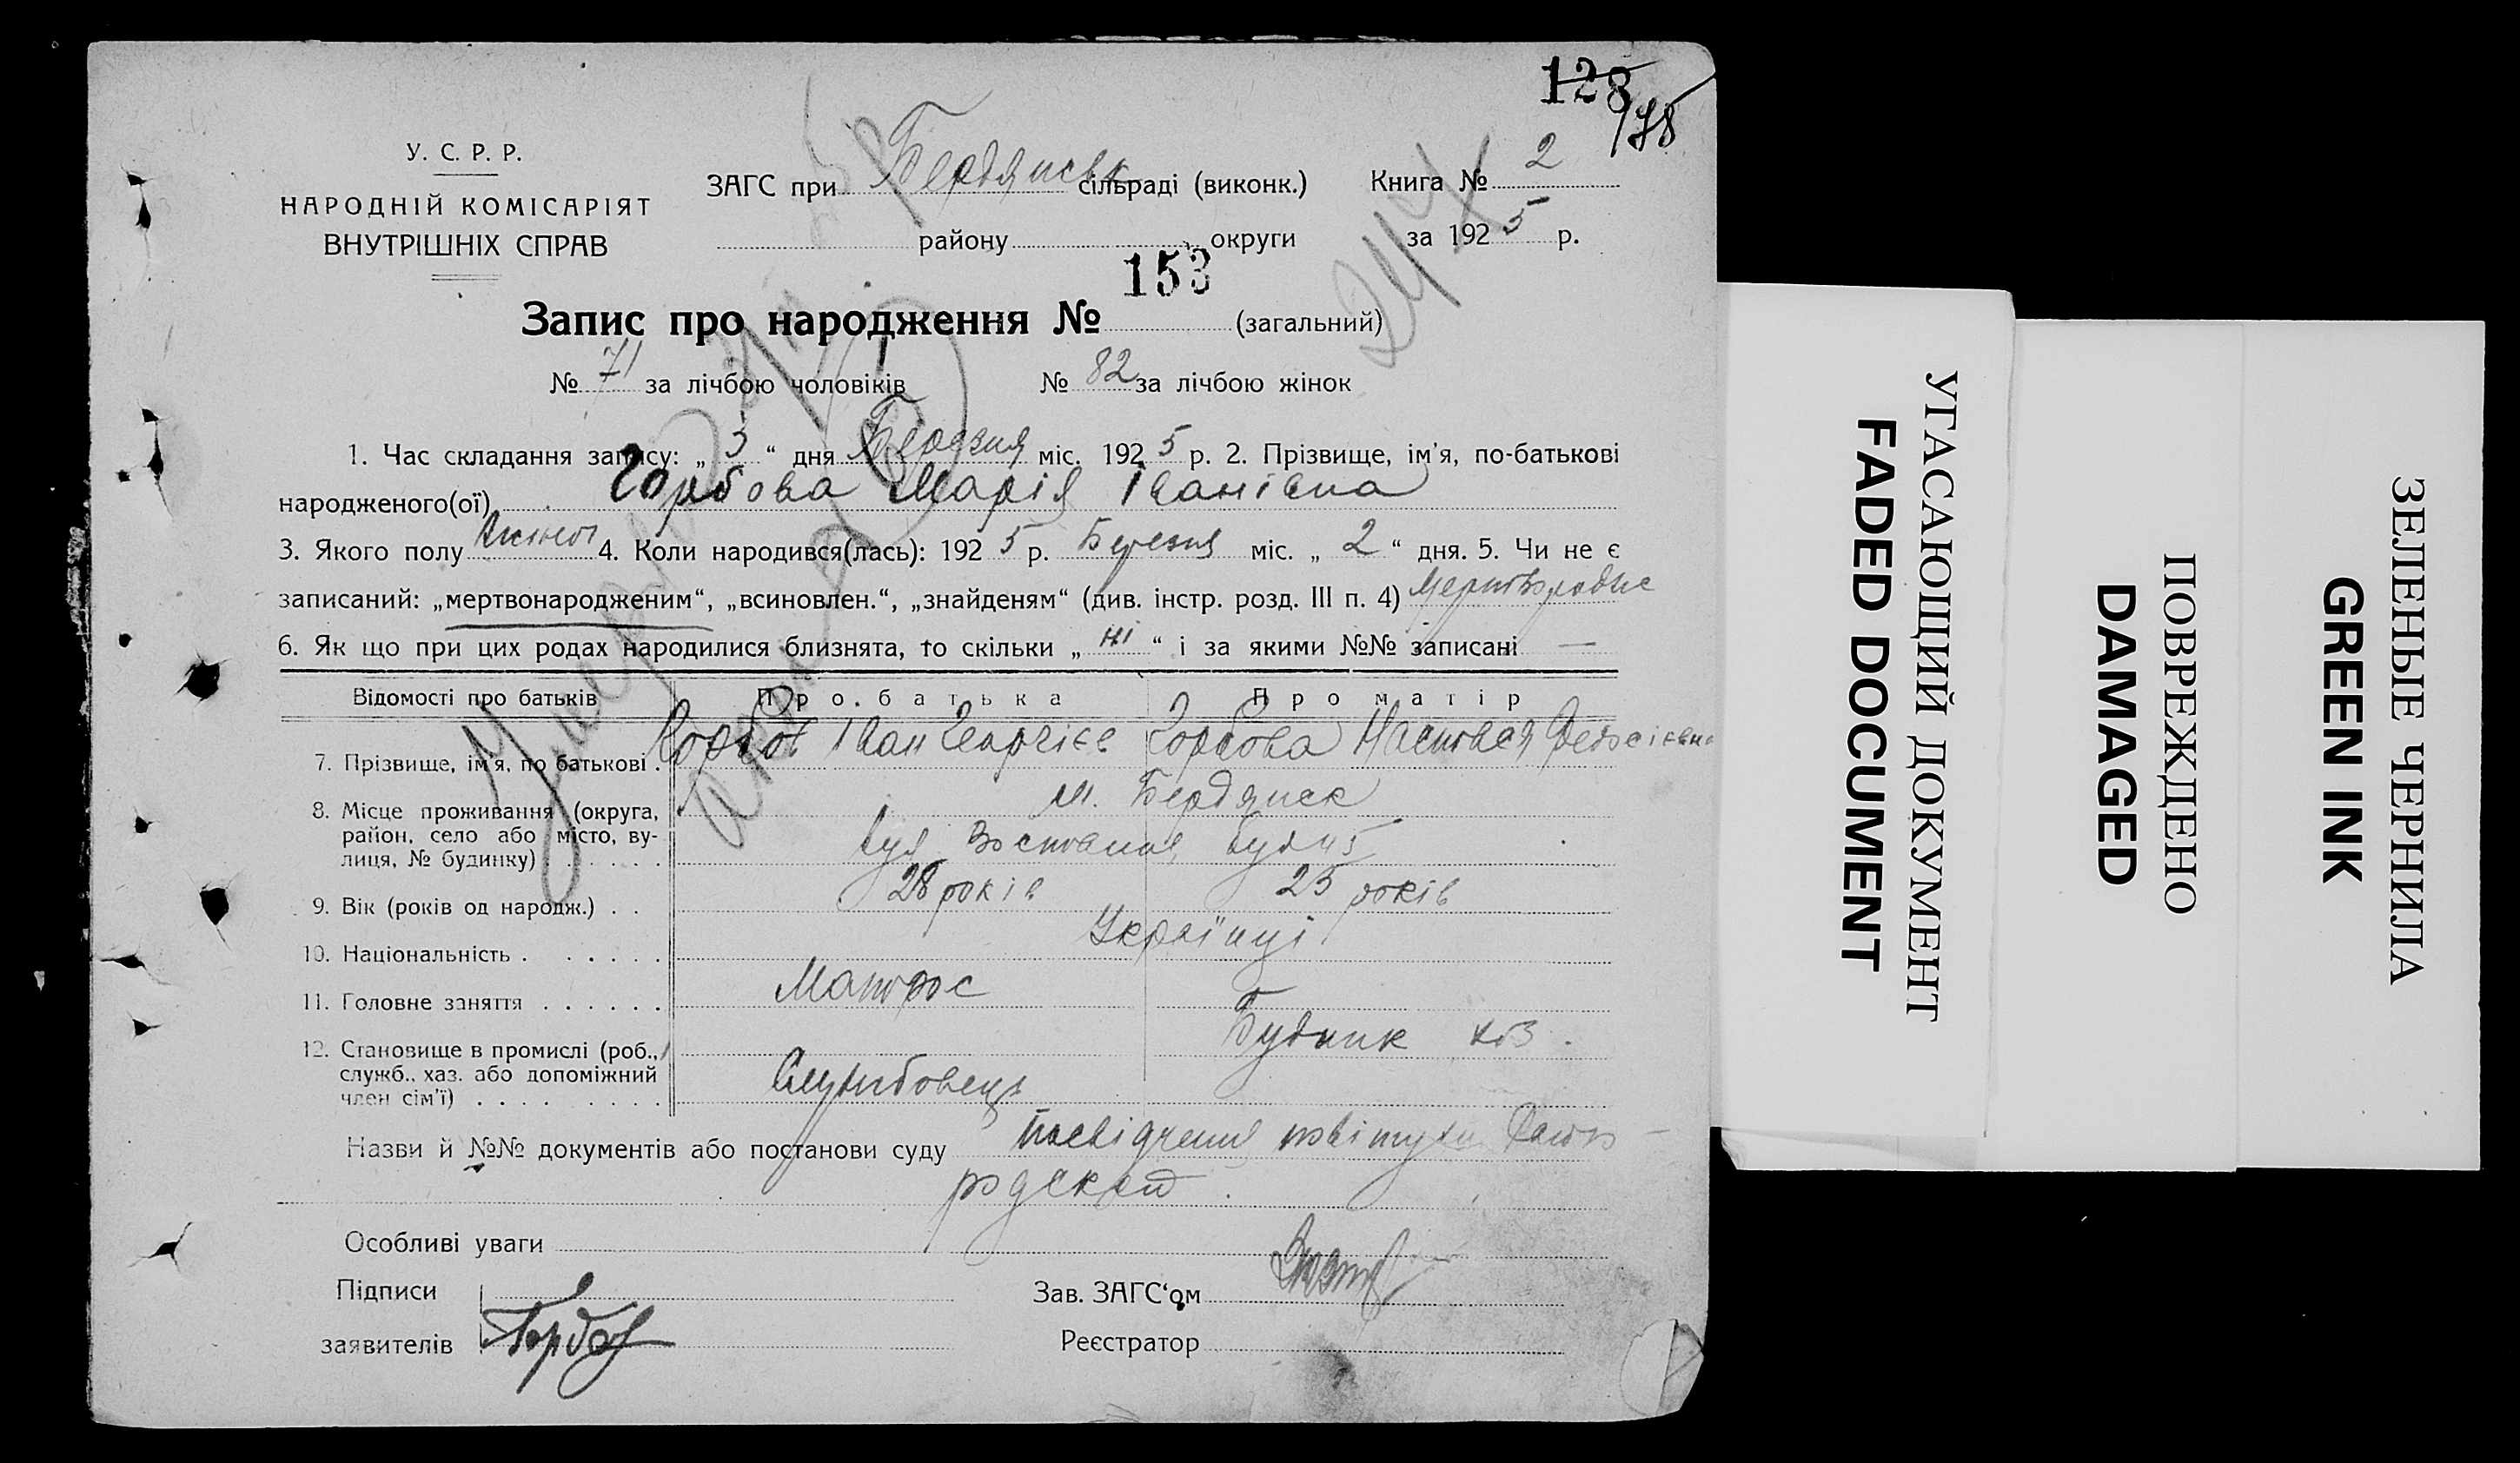 128
178
У. С. Р. Р.
НАРОДНІЙ КОМІСАРІЯТ
ВНУТРІШНІХ СПРАВ
ЗАГС при Бердянськ сільраді (виконк.) Книга № 2
району округи за 1925 р.
153
Запис про народження № (загальний)
№ 71 за лічбою чоловіків № 82 за лічбою жінок
244
1. Час складання запису: „ 3 “ дня Березня міс. 1925 р. 2. Прізвище, ім'я, по-батькові
народженого(ої) Горбова Марія Іванівна
3. Якого полу жіноч 4. Коли народився(лась): 1925 р. Березня міс. „ 2 “ дня. 5. Чи не є
записаний: „мертвонародженим“, „всиновлен.“, „знайденям“ (див. інстр. розд. III п. 4)
6. Як що при цих родах народилися близнята, то скільки „ ні “ і за якими №№ записані —
Відомості про батьків Про батька Про матір
7. Прізвище, ім'я, по батькові . Горбов Іван Георгієв Горбова Настасья
8. Місце проживання (округа, район, село або місто, вулиця, № будинку) . . . . . м. Бердянск
вул. Востания, буд 45
9. Вік (років од народж.) . . 28 років 25 років
10. Національність . . . . . . Українці
11. Головне заняття . . . . . . Матрос
12. Становище в промислі (роб., служб., хаз. або допоміжний член сім'ї) . . . . . . . . Службовець
Назви й №№ документів або постанови суду посвідчення повітухи
Особливі уваги
Підписи
заявителів Горбов
Зав. ЗАГС‘ом
Реєстратор
УГАСАЮЩИЙ ДОКУМЕНТ
FADED DOCUMENT
ПОВРЕЖДЕНО
DAMAGED
ЗЕЛЕНЫЕ ЧЕРНИЛА
GREEN INK